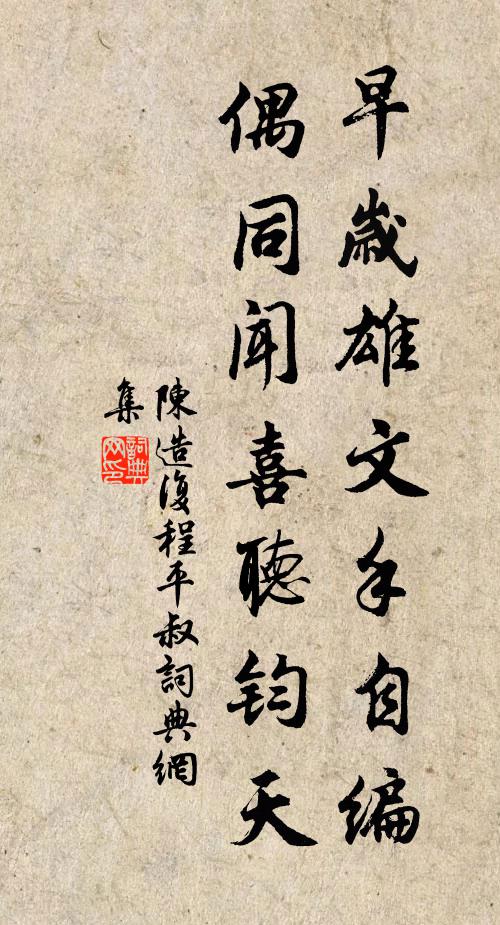 早歲雄文手自編
偶同聞喜聽鈞天
陳造復程平叔詞典網
集
詞典
网印